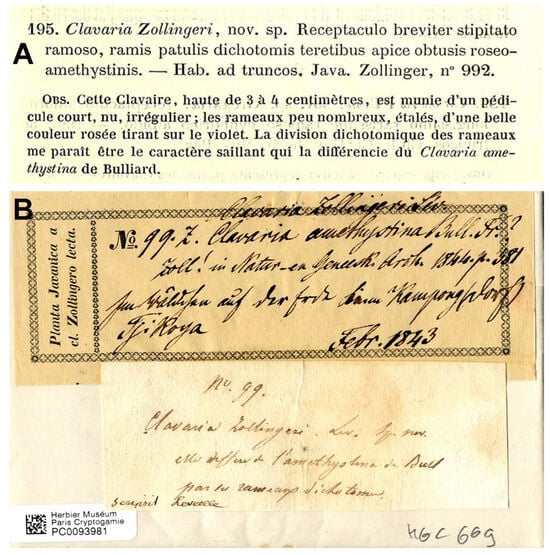 A
195. Clavaria Zollingeri, nov. sp. Receptaculo breviter stipitato
ramoso, ramis patulis dichotomis teretibus apice obtusis roseo-
amethystinis. — Hab. ad truncos. Java. Zollinger, n° 992.
Obs. Cette Clavaire, haute de 3 à 4 centimètres, est munie d'un pédi-
cule court, nu, irrégulier; les rameaux peu nombreux, étalés, d'une belle
couleur rosée tirant sur le violet. La division dichotomique des rameaux
me paraît être le caractère saillant qui la différencie du Clavaria ame-
thystina de Bulliard.
B
Clavaria Zollingeri Lév.
Planta Javanica a
cl. Zollingero lecta.
No. 99. Z. Clavaria amethystina Bull.
Zoll! in Natur-en Geneesk. Arch. 1844. p. 381
auf der Erde Kampong (Dorf)
Tjikoya
Febr. 1843
No. 99.
Clavaria Zollingeri. Lev. sp. nov.
elle diffère de l'amethystina de Bull
par ses rameaux dichotome
scripsit Leveille
Herbier Muséum
Paris Cryptogamie
PC0093981
HGC 669